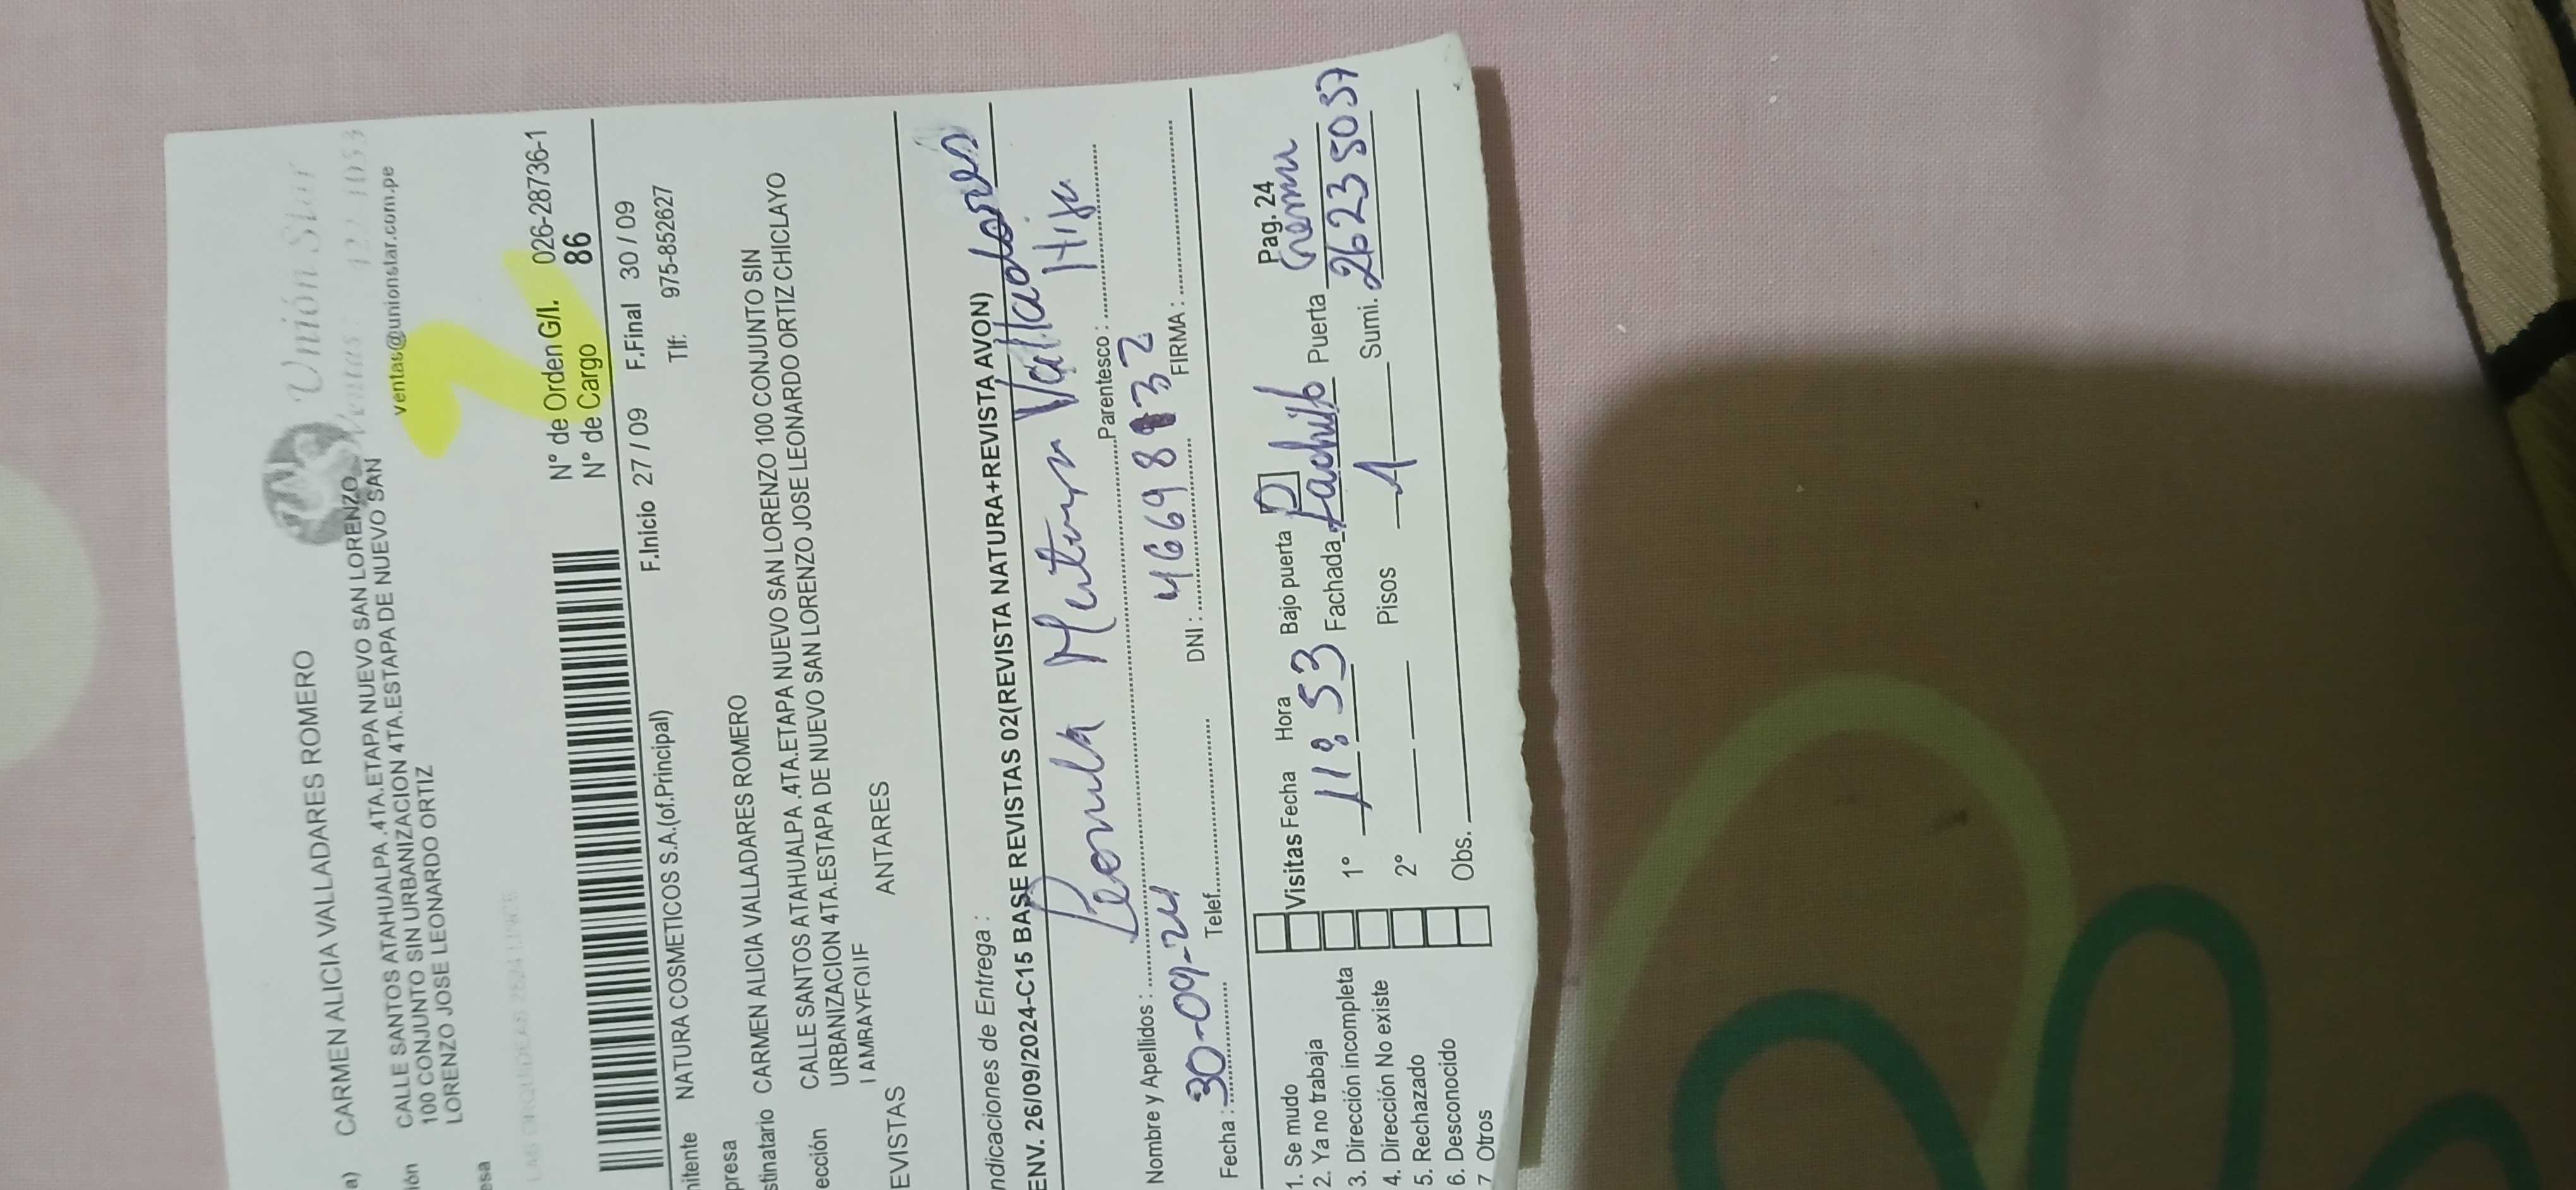 Unión Star
Ventas
ventas@unionstar.com.pe
a) CARMEN ALICIA VALLADARES ROMERO
ión CALLE SANTOS ATAHUALPA .4TA.ETAPA NUEVO SAN LORENZO
100 CONJUNTO SIN URBANIZACION 4TA.ESTAPA DE NUEVO SAN
LORENZO JOSE LEONARDO ORTIZ
esa
N° de Orden G/I. 026-28736-1
N° de Cargo 86
F.Inicio 27 / 09 F.Final 30 / 09
mitente NATURA COSMETICOS S.A.(of.Principal) Tlf: 975-852627
presa
stinatario CARMEN ALICIA VALLADARES ROMERO
ección CALLE SANTOS ATAHUALPA .4TA.ETAPA NUEVO SAN LORENZO 100 CONJUNTO SIN
URBANIZACION 4TA.ESTAPA DE NUEVO SAN LORENZO JOSE LEONARDO ORTIZ CHICLAYO
LAMBAYEQUE
EVISTAS ANTARES
ndicaciones de Entrega :
ENV. 26/09/2024-C15 BASE REVISTAS 02(REVISTA NATURA+REVISTA AVON)
Valladares
Nombre y Apellidos : Parentesco : Hija
Fecha : 30-09-24 Telef. DNI : FIRMA :
Pag. 24
1. Se mudo
2. Ya no trabaja
3. Dirección incompleta
4. Dirección No existe
5. Rechazado
6. Desconocido
7 Otros
Visitas Fecha Hora Bajo puerta
1° 11:53 Fachada Puerta
2° Pisos 1 Sumi. 26235037
Obs.